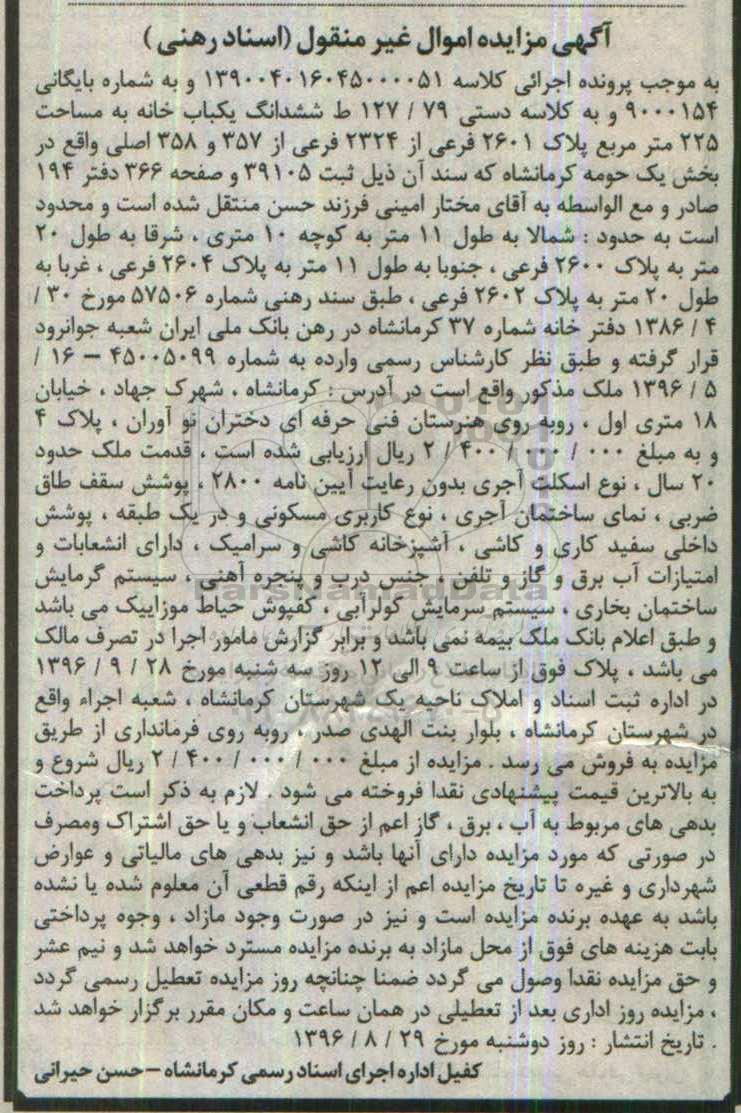 آگهی مزایده اموال غیر منقول (اسناد رهنی)
به موجب پرونده اجرائی کلاسه ۱۳۹۰۰۴۰۱۶۰۴۵۰۰۰۰۵۱ و به شماره بایگانی
۹۰۰۰۱۵۴ و به کلاسه دستی ۷۹ / ۱۲۷ ط ششدانگ یکباب خانه به مساحت
۲۲۵ متر مربع پلاک ۲۶۰۱ فرعی از ۲۳۲۴ فرعی از ۳۵۷ و ۳۵۸ اصلی واقع در
بخش یک حومه کرمانشاه که سند آن ذیل ثبت ۳۹۱۰۵ و صفحه ۳۶۶ دفتر ۱۹۴
صادر و مع الواسطه به آقای مختار امینی فرزند حسن منتقل شده است و محدود
است به حدود : شمالا به طول ۱۱ متر به کوچه ۱۰ متری ، شرقا به طول ۲۰
متر به پلاک ۲۶۰۰ فرعی ، جنوبا به طول ۱۱ متر به پلاک ۲۶۰۴ فرعی ، غربا به
طول ۲۰ متر به پلاک ۲۶۰۲ فرعی ، طبق سند رهنی شماره ۵۷۵۰۶ مورخ ۳۰ /
۴ / ۱۳۸۶ دفتر خانه شماره ۳۷ کرمانشاه در رهن بانک ملی ایران شعبه جوانرود
قرار گرفته و طبق نظر کارشناس رسمی وارده به شماره ۴۵۰۰۵۰۹۹ – ۱۶ /
۵ / ۱۳۹۶ ملک مذکور واقع است در آدرس : کرمانشاه ، شهرک جهاد ، خیابان
۱۸ متری اول ، روبه روی هنرستان فنی حرفه ای دختران نو آوران ، پلاک ۴
و به مبلغ ۰۰۰ / ۰۰۰ / ۴۰۰ / ۲ ریال ارزیابی شده است ، قدمت ملک حدود
۲۰ سال ، نوع اسکلت آجری بدون رعایت آیین نامه ۲۸۰۰ ، پوشش سقف طاق
ضربی ، نمای ساختمان آجری ، نوع کاربری مسکونی و در یک طبقه ، پوشش
داخلی سفید کاری و کاشی ، آشپزخانه کاشی و سرامیک ، دارای انشعابات و
امتیازات آب برق و گاز و تلفن ، جنس درب و پنجره آهنی ، سیستم گرمایش
ساختمان بخاری ، سیستم سرمایش کولرآبی ، کفپوش حیاط موزاییک می باشد
و طبق اعلام بانک ملک بیمه نمی باشد و برابر گزارش مامور اجرا در تصرف مالک
می باشد ، پلاک فوق از ساعت ۹ الی ۱۲ روز سه شنبه مورخ ۲۸ / ۹ / ۱۳۹۶
در اداره ثبت اسناد و املاک ناحیه یک شهرستان کرمانشاه ، شعبه اجراء واقع
در شهرستان کرمانشاه ، بلوار بنت الهدی صدر ، روبه روی فرمانداری از طریق
مزایده به فروش می رسد . مزایده از مبلغ ۰۰۰ / ۰۰۰ / ۴۰۰ / ۲ ریال شروع و
به بالاترین قیمت پیشنهادی نقدا فروخته می شود . لازم به ذکر است پرداخت
بدهی های مربوط به آب ، برق ، گاز اعم از حق انشعاب و یا حق اشتراک ومصرف
در صورتی که مورد مزایده دارای آنها باشد و نیز بدهی های مالیاتی و عوارض
شهرداری و غیره تا تاریخ مزایده اعم از اینکه رقم قطعی آن معلوم شده یا نشده
باشد به عهده برنده مزایده است و نیز در صورت وجود مازاد ، وجوه پرداختی
بابت هزینه های فوق از محل مازاد به برنده مزایده مسترد خواهد شد و نیم عشر
و حق مزایده نقدا وصول می گردد ضمنا چنانچه روز مزایده تعطیل رسمی گردد
، مزایده روز اداری بعد از تعطیلی در همان ساعت و مکان مقرر برگزار خواهد شد
. تاریخ انتشار : روز دوشنبه مورخ ۲۹ / ۸ / ۱۳۹۶
کفیل اداره اجرای اسناد رسمی کرمانشاه – حسن حیرانی
ParsNamadData